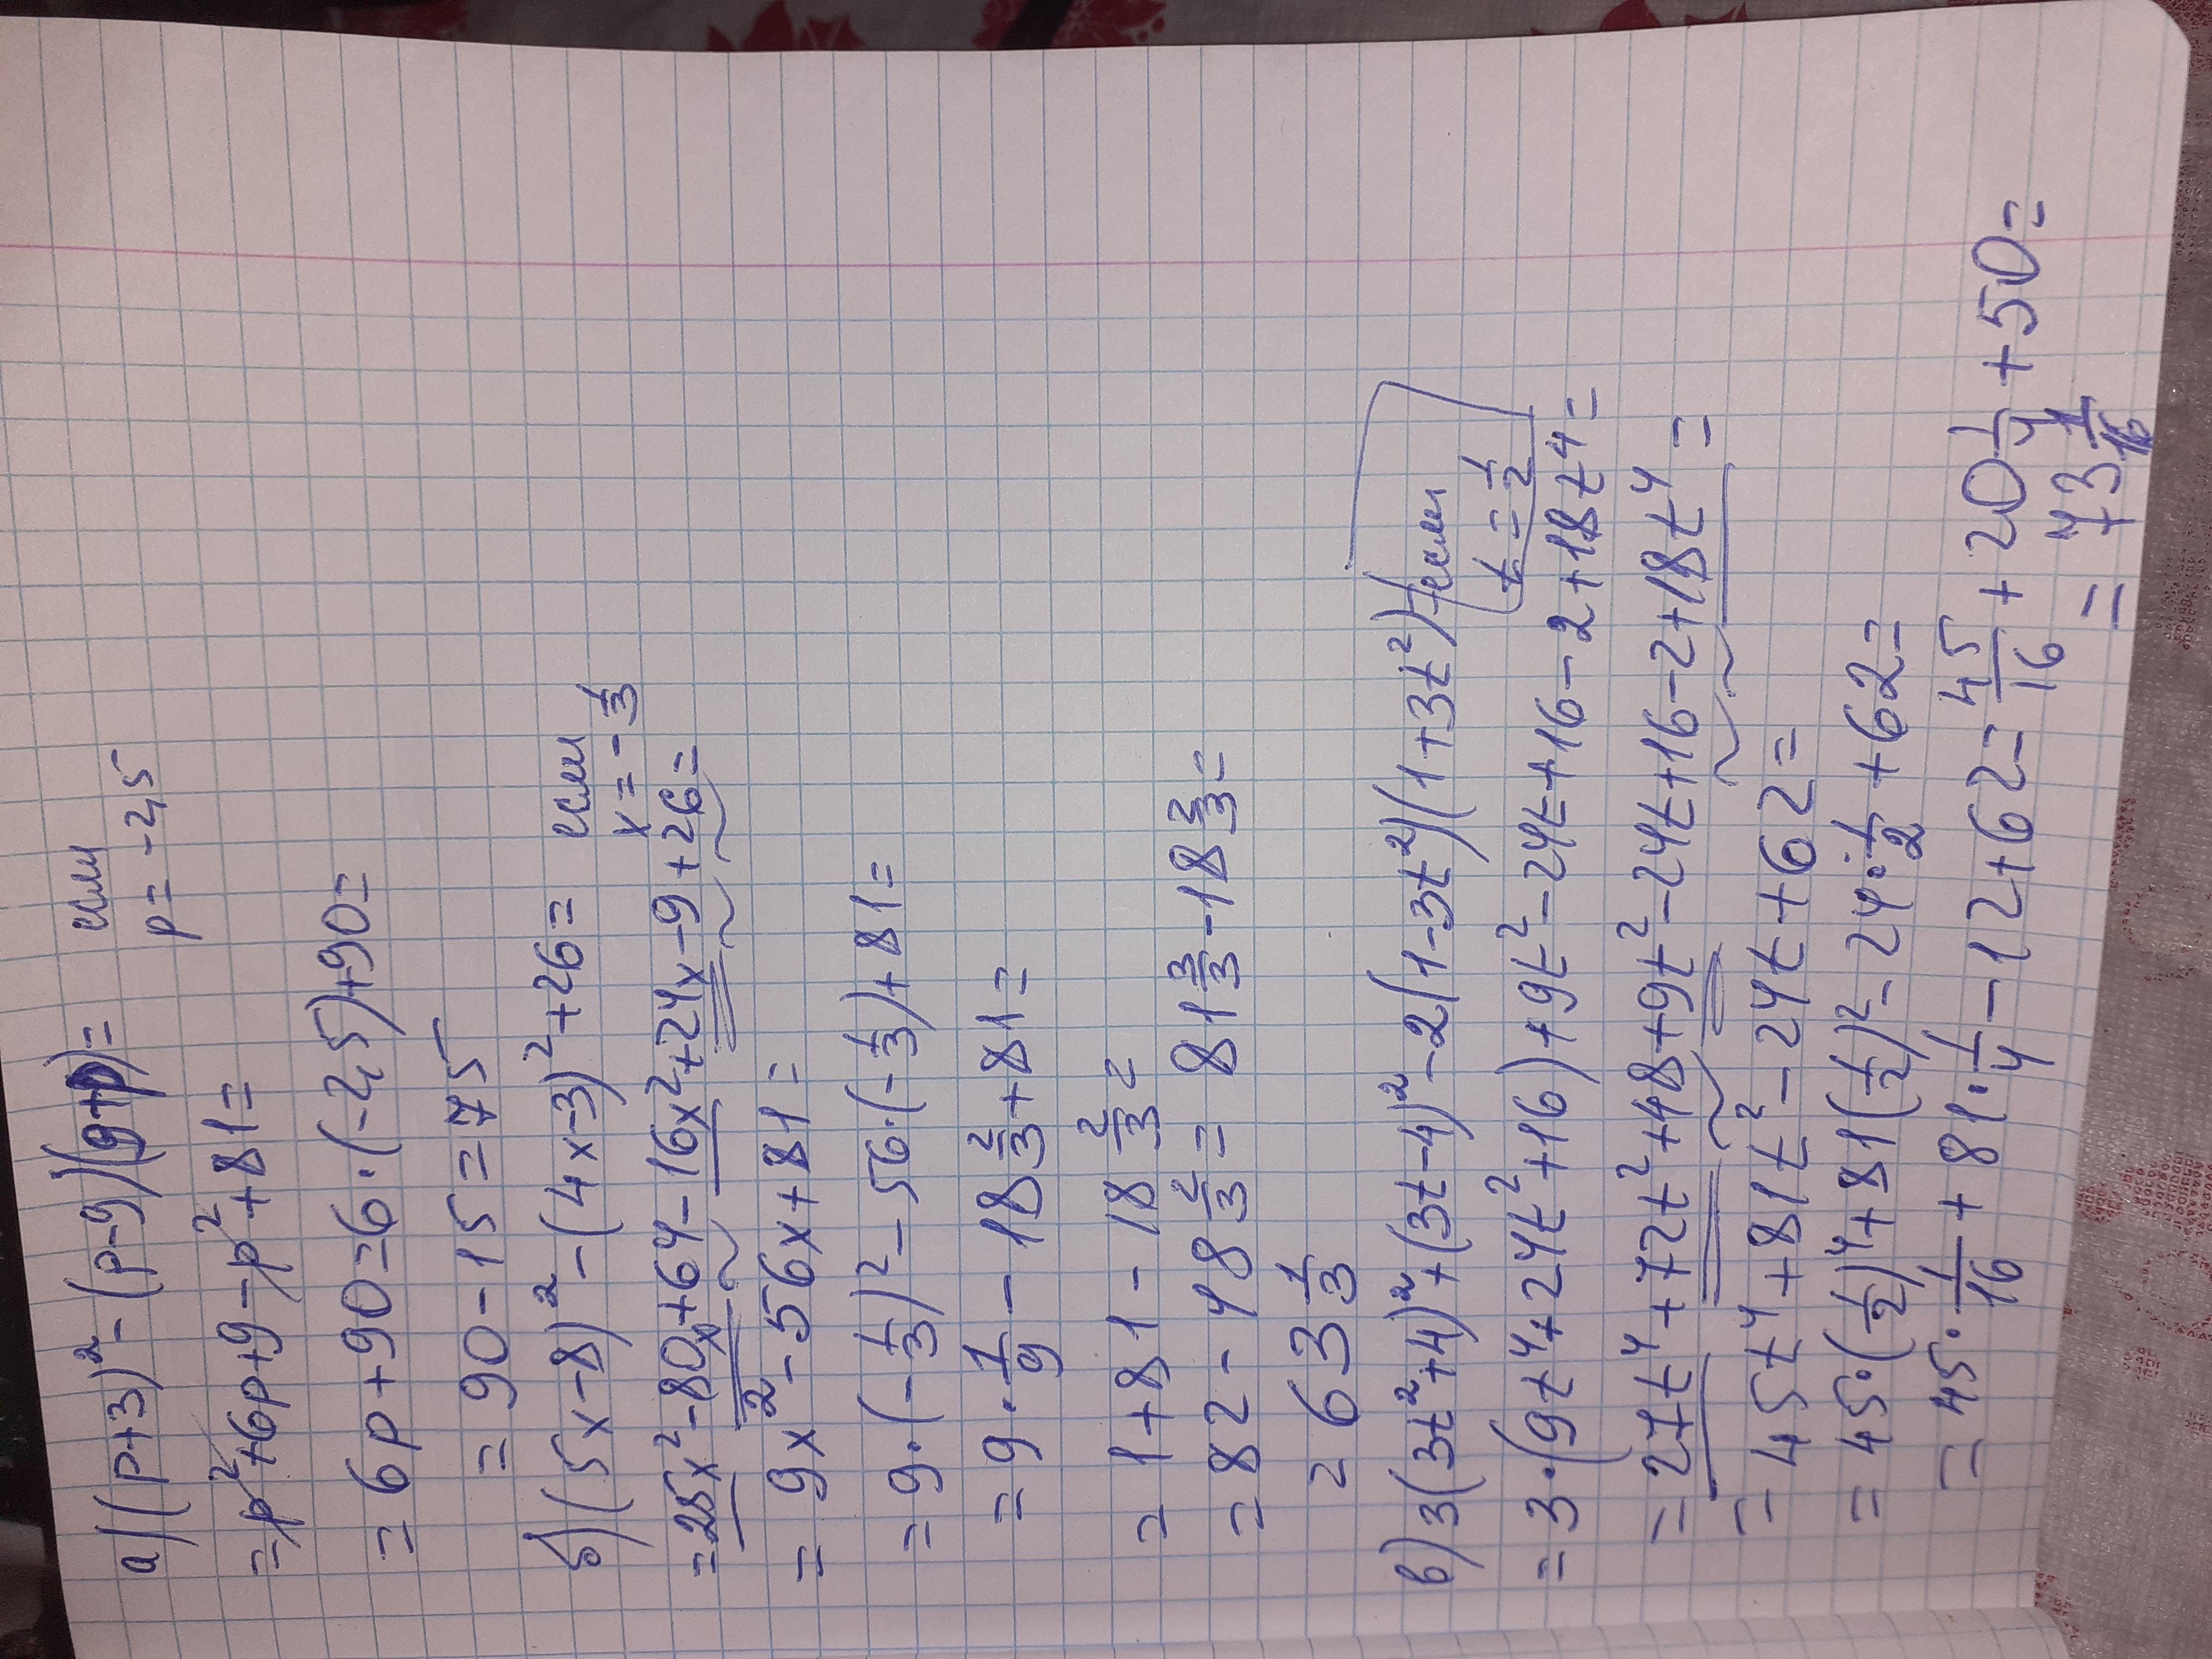 а) (p+3)² - (p-9)(9+p)= если
p = -2,5
= p² + 6p + 9 - p² + 81 =
= 6p + 90 = 6·(-2,5) + 90 =
= 90 - 15 = 75
б) (5x-8)² - (4x-3)² + 26 = если
x = -1/3
= 25x² - 80x + 64 - 16x² + 24x - 9 + 26 =
= 9x² - 56x + 81 =
= 9·(-1/3)² - 56·(-1/3) + 81 =
= 9·1/9 - 18 2/3 + 81 =
= 1 + 81 - 18 2/3 =
= 82 - 18 2/3 = 81 3/3 - 18 2/3 =
= 63 1/3
в) 3(3t²+4)² + (3t-4)² - 2(1-3t²)(1+3t²) если
t = 1/2
= 3·(9t⁴ + 24t² + 16) + 9t² - 24t + 16 - 2 + 18t⁴ =
= 27t⁴ + 72t² + 48 + 9t² - 24t + 16 - 2 + 18t⁴ =
= 45t⁴ + 81t² - 24t + 62 =
= 45·(1/2)⁴ + 81(1/2)² - 24·1/2 + 62 =
= 45·1/16 + 81·1/4 - 12 + 62 = 45/16 + 20 1/4 + 50 =
= 73 1/16